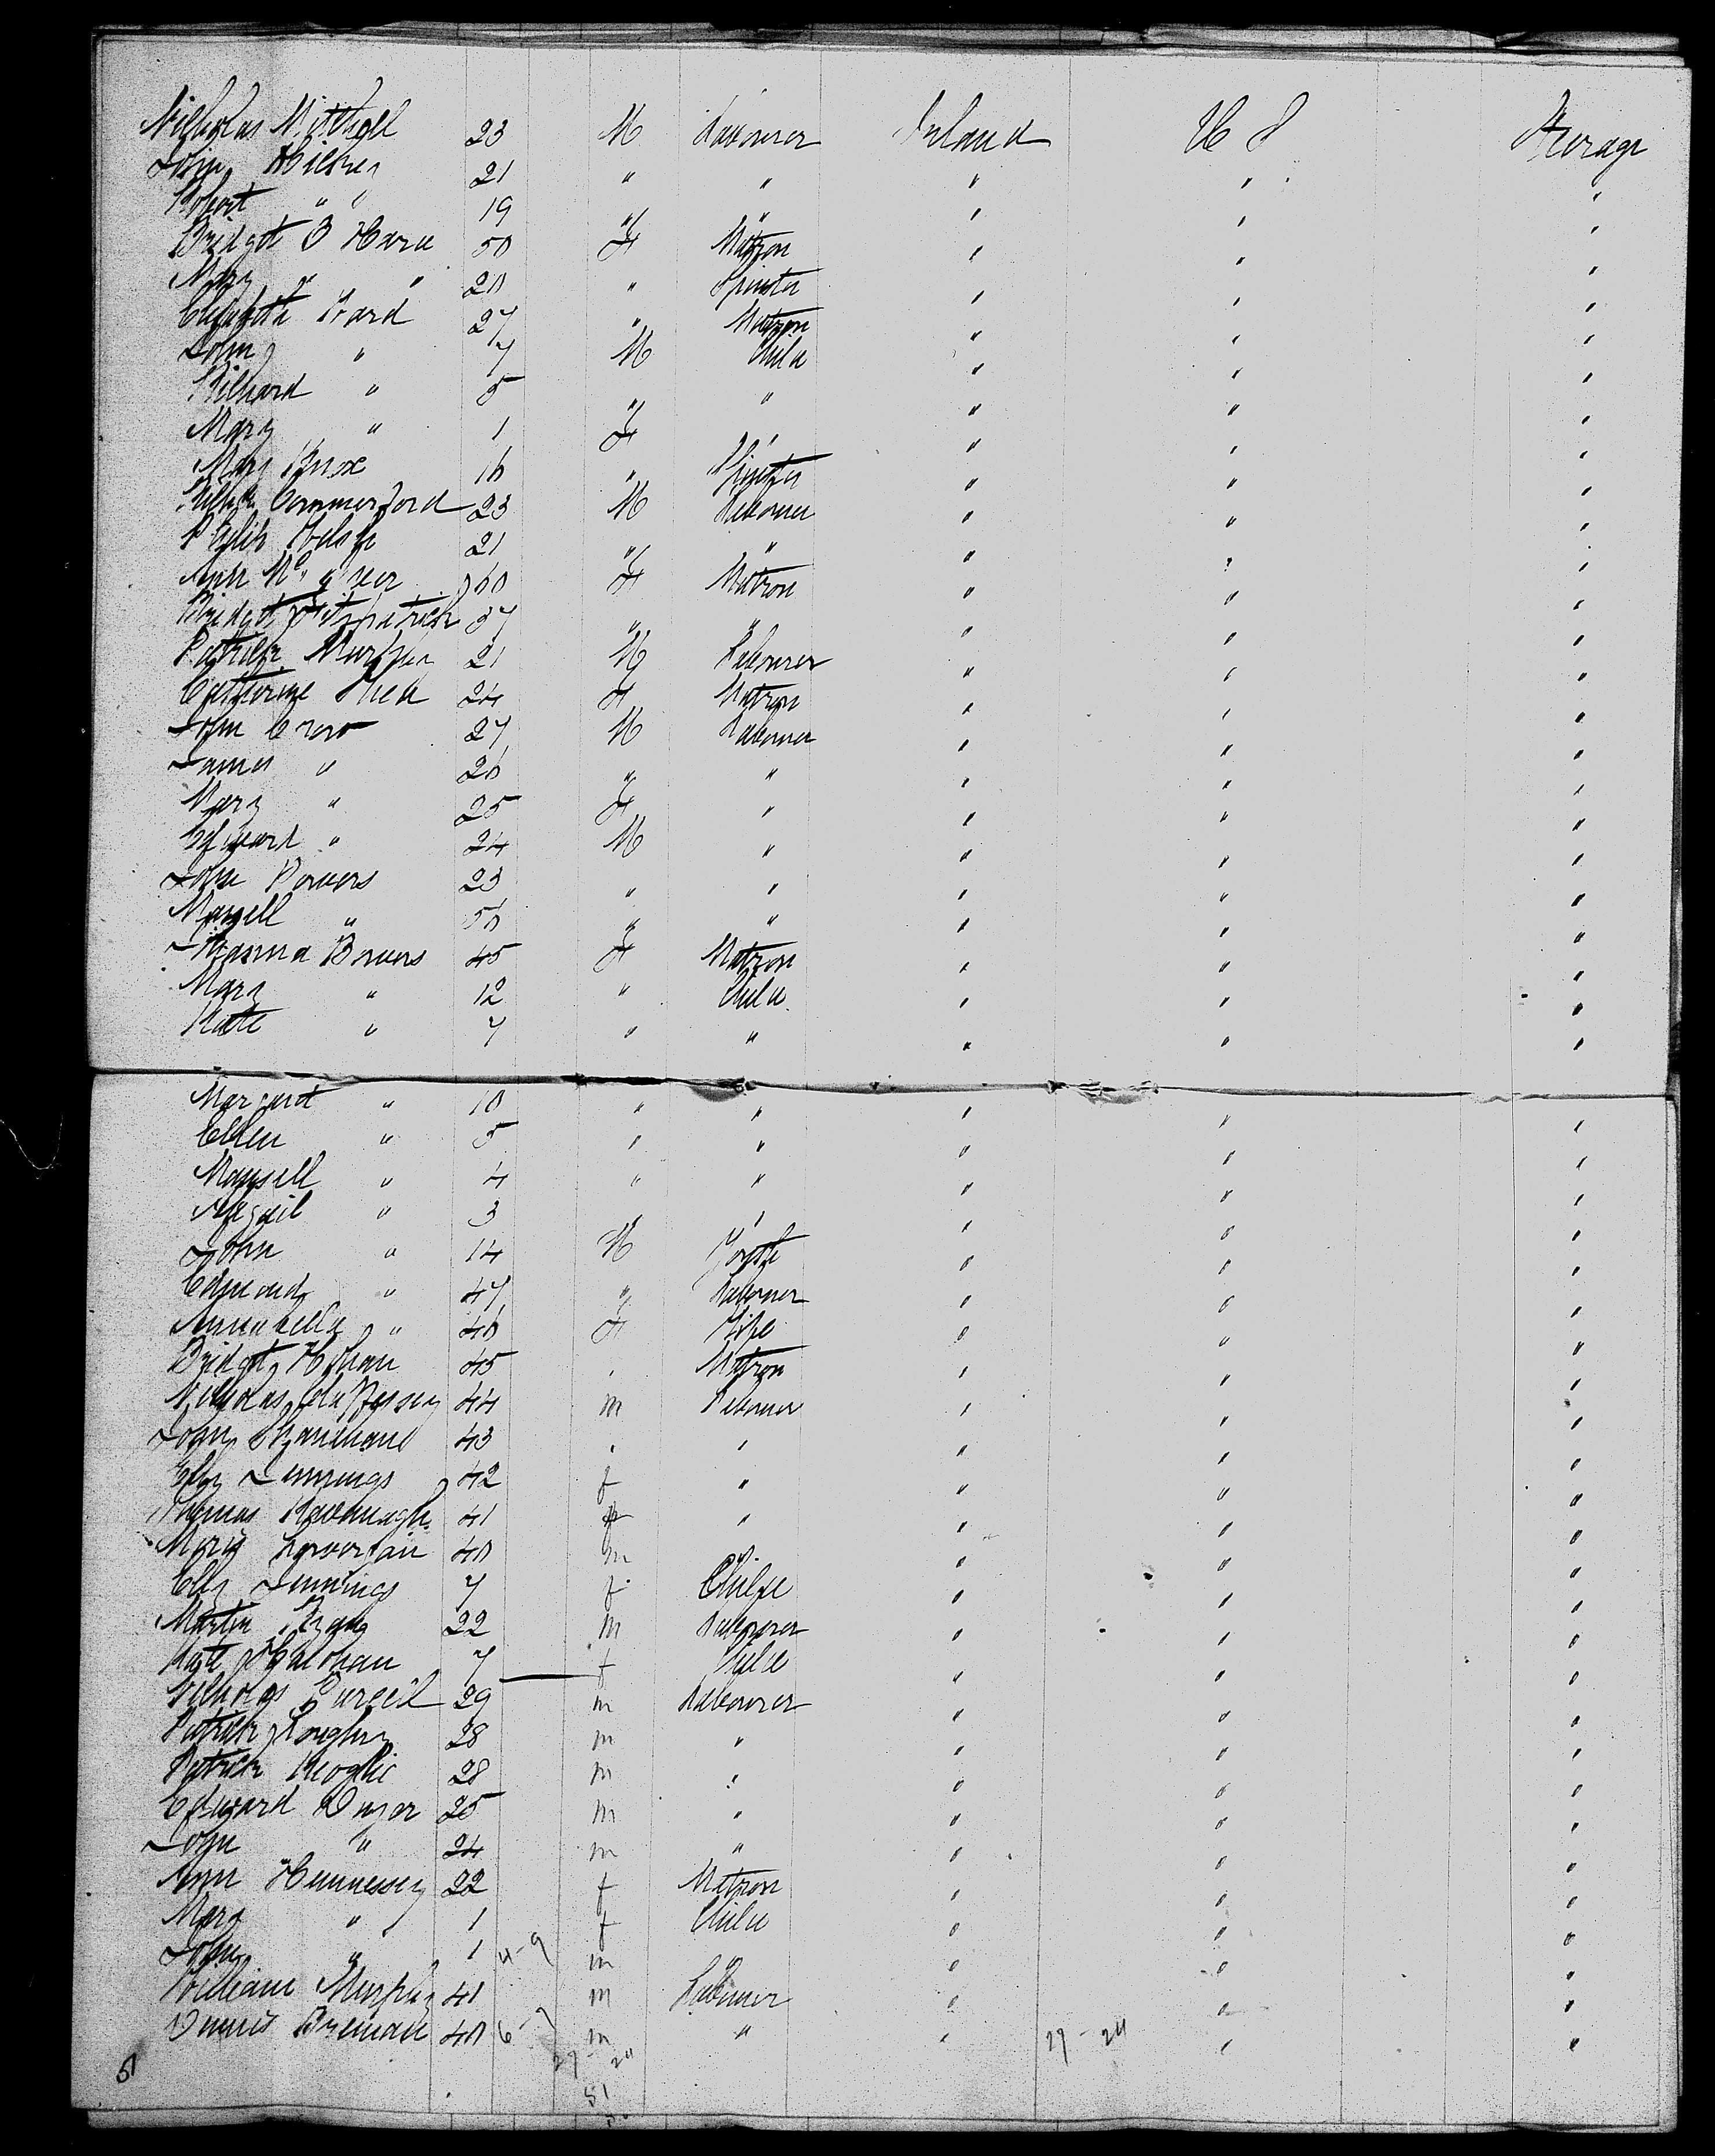 Nicholas Mitchell 23 M Labourer Ireland U S Steerage
John 21 " " " " "
Robert " " 19 " " " " "
Bridget O Hara 50 F Matron " " "
Mary " " 20 " Spinster " " "
Elizabeth Ward 27 " Matron " " "
John " 7 M Child " " "
Richard " 5 " " " " "
Mary " 1 F " " " "
Mary 16 " Spinster " " "
Commerford 23 M Labourer " " "
21 " " " " "
Ann F Matron " " "
Bridget Fitzpatrick 37 " " " " "
Patrick Murphy 21 M Labourer " " "
Catherine Shea 24 F Matron " " "
John Crow 27 M Labourer " " "
James " 26 " " " " "
Mary " 25 F " " " "
Edward " 24 M " " " "
John Powers 23 " " " " "
" 50 " " " " "
Powers 45 F Matron " " "
Mary " 12 " Child " " "
Kate " 7 " " " " "
Margaret " 10 " " " " "
Ellen " 5 " " " " "
" 4 " " " " "
Abigail " 3 " " " "
John " 14 M Youth " " "
Edmond " 47 " Labourer " " "
Annabella " 40 F Wife " " "
Bridget Hohan 45 " Matron " " "
Nicholas 44 m Labourer " " "
John Shanahan 43 " " " " "
Elly Jennings 42 f " " " "
Thomas Kavanagh 41 " " " "
40 m " " " "
Elly Jennings 7 f Child " " "
Martin Ryan 22 m Labourer " " "
Kate 7 f Child " " "
Nicholas Purcell 29 m Labourer " " "
Patrick Loughry 28 m " " " "
Patrick Keoghe 28 m " " " "
Edward Dwyer 25 m " " " "
John " 24 m " " " "
Ann Hennessy 22 f Matron " " "
Mary " 1 f Child " " "
John " 1 4-9 m " " " "
William Murphy 41 m Labourer " " "
Dennis Brenan 40 m " " " "
27 - 24 27 - 24
51 51